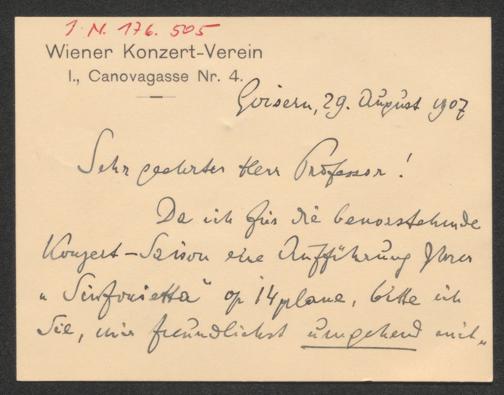 I. N. 176.505
Wiener Konzert-Verein
I., Canovagasse Nr. 4.
Goisern, 29. August 1907
Sehr geehrter Herr Professor!
Da ich für die bevorstehende
Konzert-Saison eine Aufführung Ihrer
„Sinfonietta" op 14 plane, bitte ich
Sie, mir freundlichst umgehend mit„